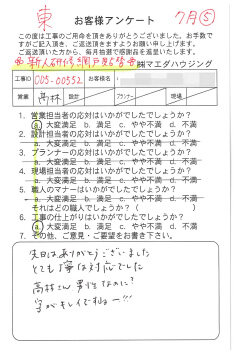 東
お客様アンケート
7月⑤
この度は工事のご用命を頂きありがとうございました。お手数で
すがご記入頂き、ご返送頂きますようお願い申し上げます。
ご返送頂いた方から、毎月抽選で感謝品を進呈いたします。
㈱マエダハウジング
工事ID 005-00552 お客様名
営業 高林 設計 プランナー 現場
1. 営業担当者の応対はいかがでしたでしょうか?
a. 大変満足 b. 満足 c. やや不満 d. 不満
2. 設計担当者の応対はいかがでしたでしょうか?
a. 大変満足 b. 満足 c. やや不満 d. 不満
3. プランナーの応対はいかがでしたでしょうか?
a. 大変満足 b. 満足 c. やや不満 d. 不満
4. 現場担当者の応対はいかがでしたでしょうか?
a. 大変満足 b. 満足 c. やや不満 d. 不満
5. 職人のマナーはいかがでしたでしょうか?
a. 大変満足 b. 満足 c. やや不満 d. 不満
それはどの職人でしょうか?( )
6. 工事の仕上がりはいかがでしたでしょうか?
a. 大変満足 b. 満足 c. やや不満 d. 不満
7. その他、ご意見・ご要望をお書き下さい。
先日はありがとうございました
とても丁寧な対応でした
高林さん男性なのに?
字がキレイですねー!!!